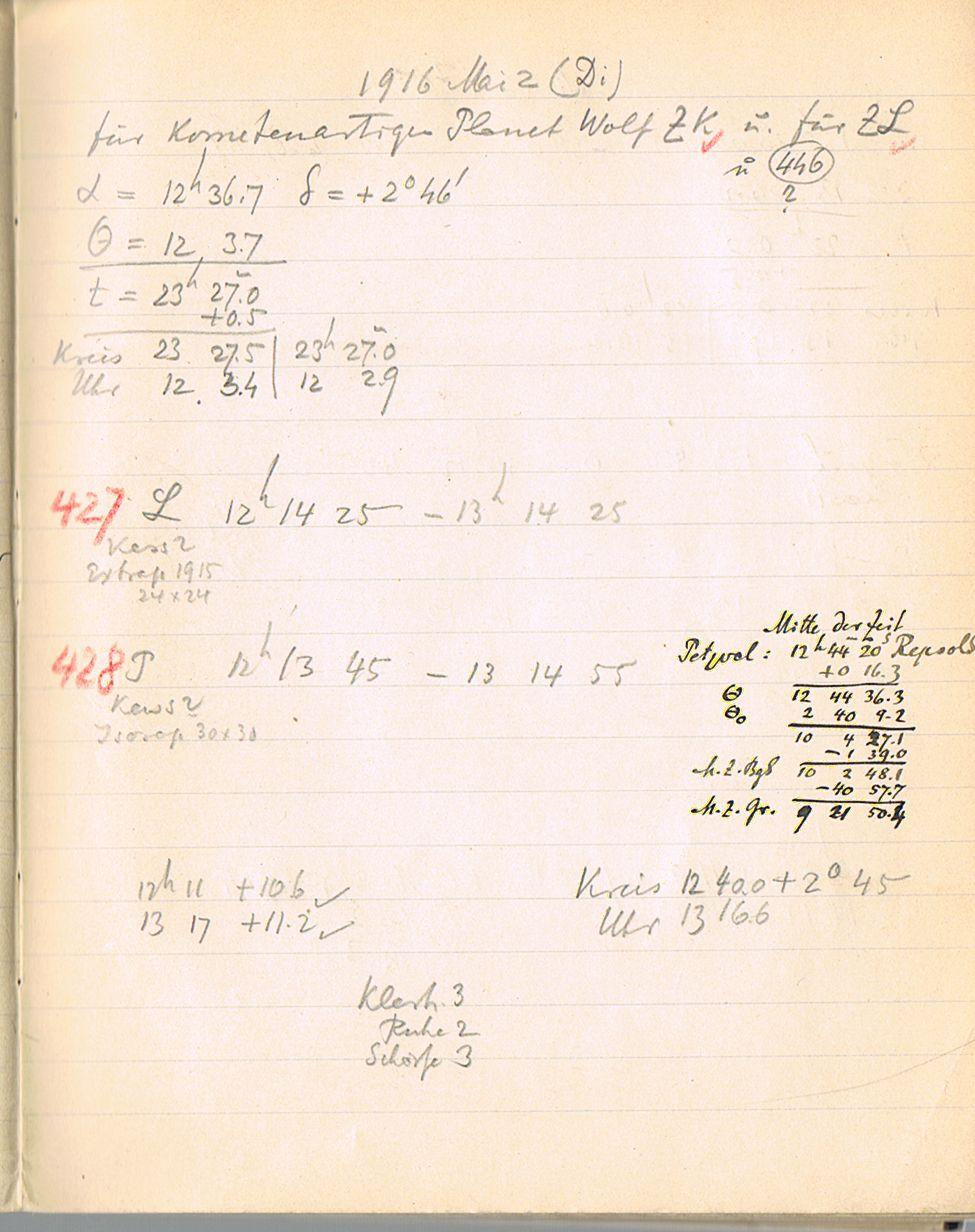 1916 Mai 2 (Di)
für Kometenartigen Planet Wolf ZK u. für ZL
u 446
?
α = 12h 36.7 δ = +2° 46'
Θ = 12 3.7
t = 23h 27.0
+0.5
Kreis 23 27.5 | 23h 27.0
Uhr 12 3.4 | 12 2.9
427 L 12h 14 25 – 13h 14 25
Extrap 1915
24x24
428 P 12h 13 45 – 13 14 55
30x30
Mitte der Zeit
Petzval: 12h 44m 20s Repsold
+0 16.3
Θ 12 44 36.3
Θo 2 40 9.2
10 4 27.1
–1 39.0
M.Z.Bgd 10 2 48.1
–40 57.7
M.Z.Gr. 9 21 50.4
12h 11 +10.6 ✓
13 17 +11.2 ✓
Kreis 12 40.0 + 2° 45
Uhr 13 16.6
Klarh. 3
Ruhe 2
Schärfe 3